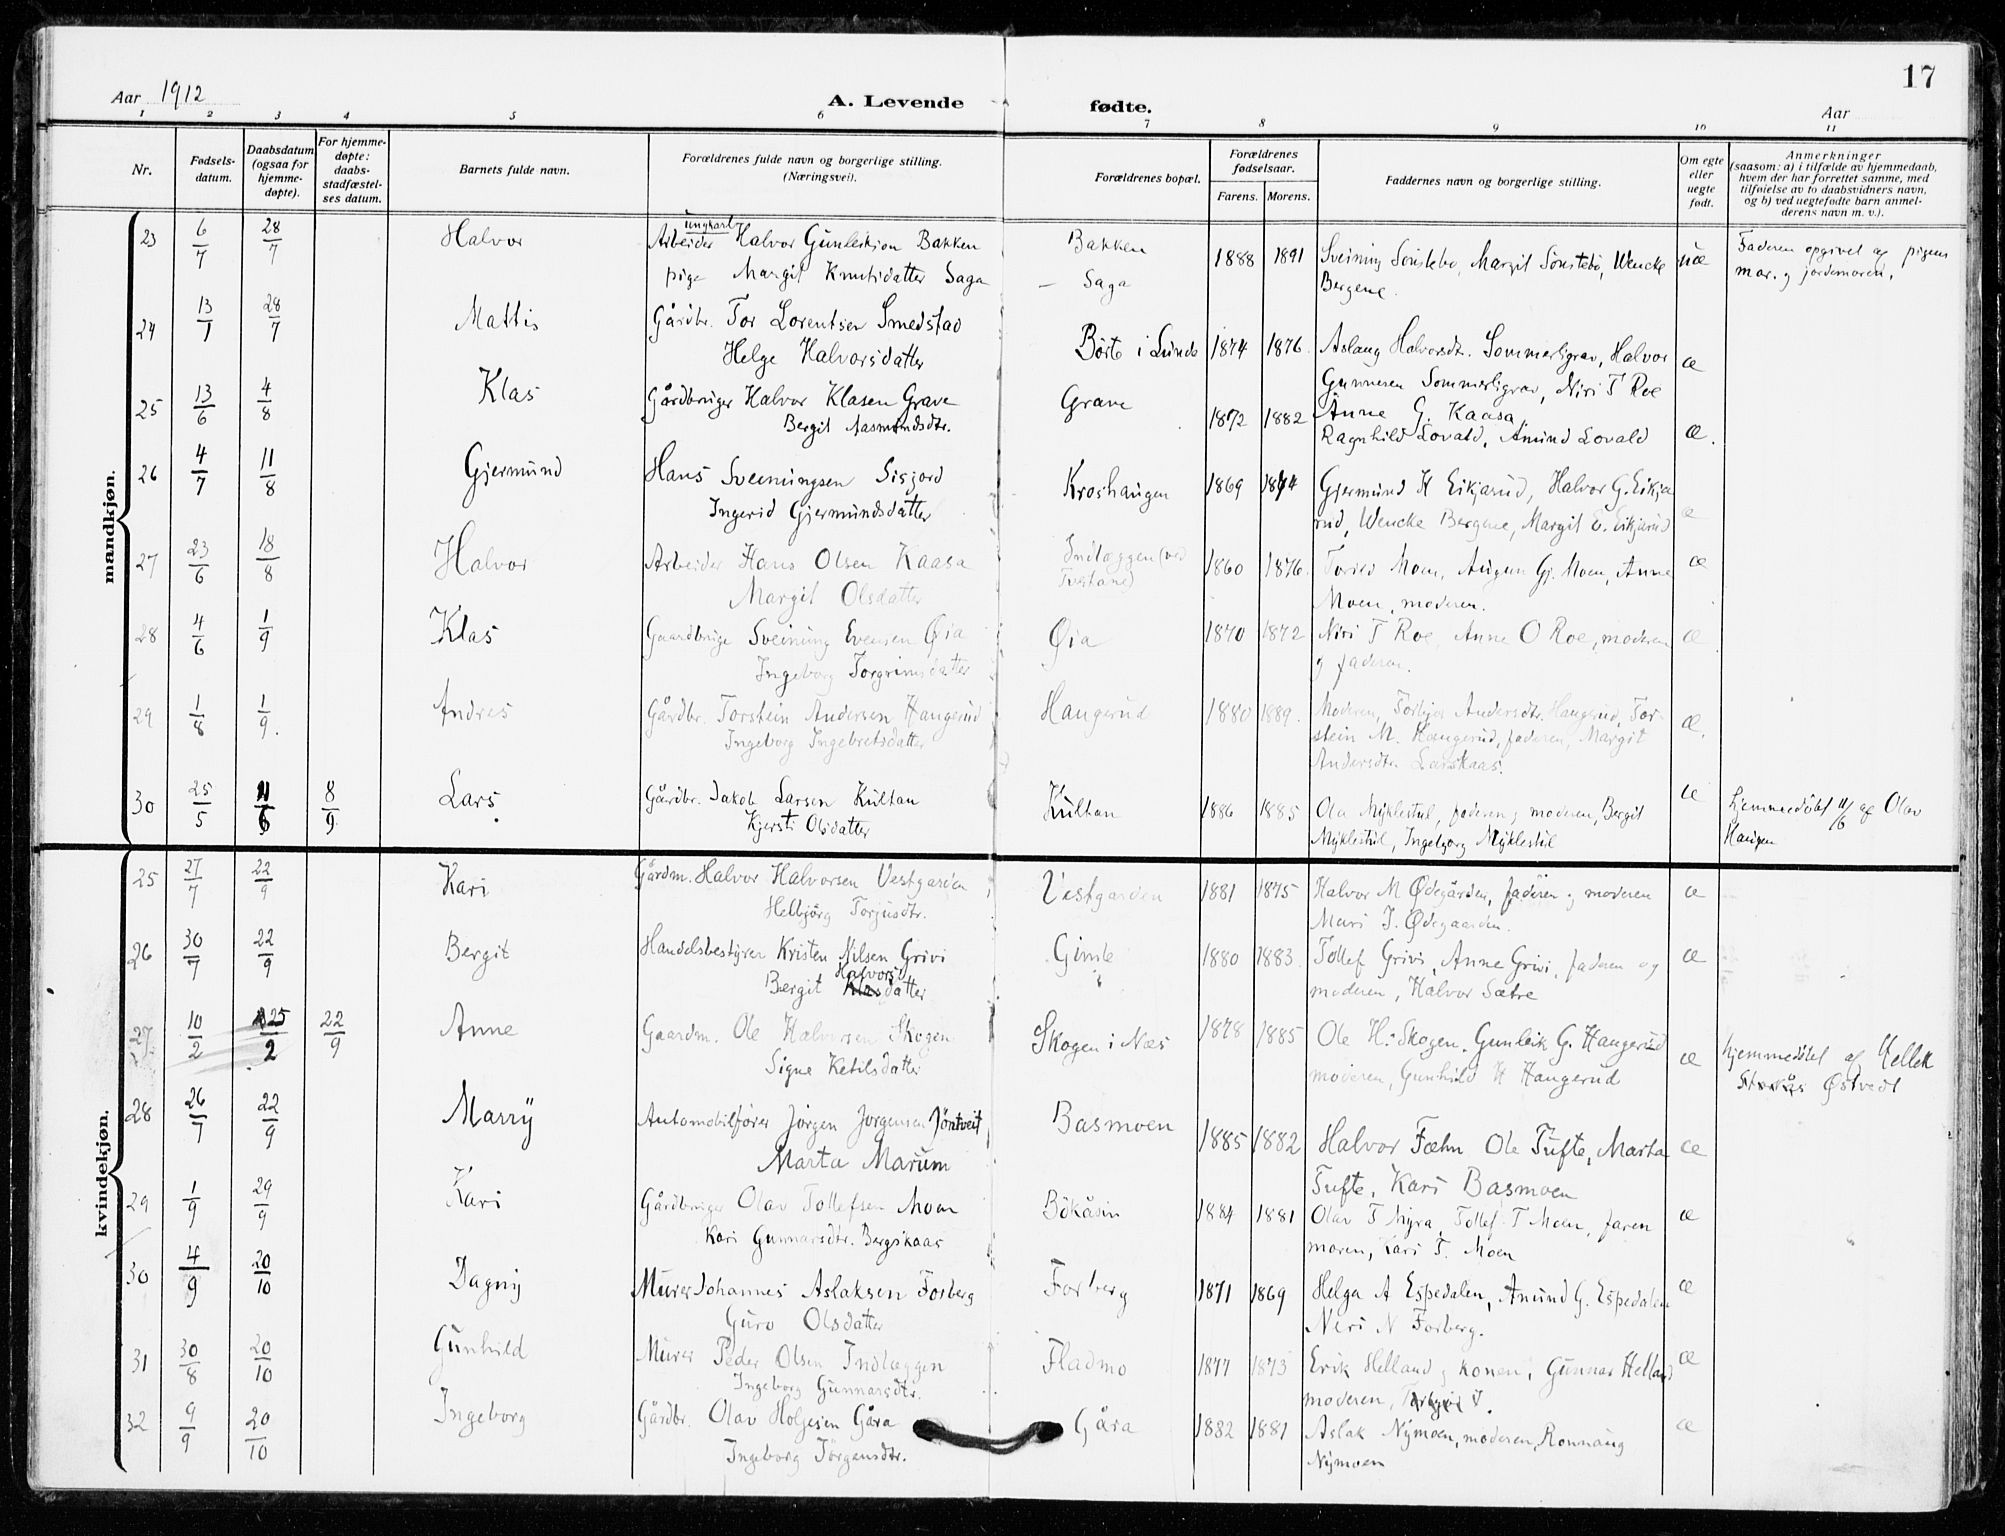 17
Aar 1912
A. Levende fødte.
Aar
1 2 3 4 5 6 7 8 9 10 11
Nr.
Fødsels-
datum.
Daabsdatum
(ogsaa for
hjemme-
døpte).
For hjemme-
døpte:
daabs-
stadfæstel-
ses datum.
Barnets fulde navn.
Forældrenes fulde navn og borgerlige stilling.
(Næringsvei).
Forældrenes bopæl.
Forældrenes
fødselsaar.
Farens. Morens.
Faddernes navn og borgerlige stilling.
Om egte
eller
uegte
født.
Anmerkninger
(saasom: a) i tilfælde av hjemmedaab,
hvem der har forrettet samme, med
tilføielse av to daabsvidners navn,
og b) ved uegtefødte barn anmel-
derens navn m. v.).
mandkjøn.
23 6/7 28/7 Halvor ungkarl Arbeider Halvor Gunleikson Bakken Bakken 1888 1891 Sveinung Sønstebø, Margit Sønstebø, Wencke uæ Faderen opgivet af pigens
pige Margit Knutsdatter Saga – Saga Bergene. mor. og jordemoren.
24 13/7 28/7 Mattis Gårdbr. Tor Lorentsen Smedstad
Helge Halvorsdatter Børte i Lunde 1874 1876. Aslaug Halvorsdtr. Sommerligrav, Halvor æ
Gunnersen Sommerligrav, Niri T Roe
25 13/6 4/8 Klas Gårdbruger Halvor Klasen Grave Grave 1872 1882 Anne G. Kaasa,
Bergit Aasmundsdtr. Ragnhild Lovald, Amund Lovald æ.
26 4/7 11/8 Gjermund Hans Sveinungsen Sisjord Kroshaugen 1869 1874 Gjermund K Eikjarud, Halvor G. Eikja
Ingerid Gjermundsdatter rud, Wencke Bergene, Margit E. Eikjarud æ
27 23/6 18/8 Halvor Arbeider Hans Olsen Kaasa Indlæggen (ved 1860 1876. Moen, Augun Gj. Moen, Anne æ
Margit Olsdatter Moen, moderen.
28 4/6 1/9 Klas Gaardbruge Sveinung Evensen Øia Øia 1870 1872 Niri T Roe, Anne O Roe, moderen æ
Ingeborg Torgrimsdatter og faderen.
29 1/8 1/9. Andres Gårdbr. Torstein Andersen Haugerud Haugerud 1880 1889. Moderen, Torbjør Andersdtr. Haugerud, Tor- æ.
Ingeborg Ingebretsdatter stein M. Haugerud, faderen, Margit
Andersdtr Larskaas.
30 25/5 11/6 8/9 Lars. Gårdbr. Jakob Larsen Kultan Kultan 1886 1885 Ola Myklestul, faderen og moderen, Bergit æ hjemmedøbt 11/6 af Olav
Kjersti Olsdatter Myklestul, Ingeborg Myklestul Haugen
kvindekjøn.
25 27/7 22/9 Kari Gårdm. Halvor Halvorsen Vestgarden Vestgarden 1881 1875 Halvor M Ødegården, faderen og moderen æ
Helbjørg Torjusdtr. Mari J. Ødegaarden.
26 30/7 22/9 Bergit Handelsbestyrer Kristen Nilsen Grivi Gimle 1880 1883. Tollef Grivi, Anne Grivi, faderen og æ
Bergit Klas Halvorsdatter " moderen, Halvor Sætre
27. 10/2 25/2 22/9 Anne Gaardm. Ole Halvorsen Skogen Skogen i Næs 1878 1885 Ole H. Skogen, Gunleik G. Haugerud æ hjemmedøbt af Hellek
Signe Ketilsdatter moderen, Gunhild H Haugerud Østvedt
28 26/7 22/9 Marry Automobilfører Jørgen Jørgensen Jöntveit Basmoen 1885 1882 Halvor Fæhn Ole Tufte, Marta æ
Marta Marum Tufte, Kari Basmoen
29 1/9 29/9 Kari Gårdbruger Olav Tollefsen Moen Bökåsin 1884 1881 Olav T Myra, Tollef T Moen, faren æ
Kari Gunnarsdtr. Bergskaas moren, Kari T. Moen
30 4/9 20/10 Dagny Murer Johannes Aslaksen Forberg Forberg 1871 1869 Helga A Espedalen, Amund G. Espedalen æ
Guro Olsdatter Niri N Forberg.
31 30/8 20/10 Gunhild Murer Peder Olsen Indlæggen Fladmo 1877 1873 Erik Helland og konen, Gunnar Helland æ
Ingeborg Gunnarsdtr. moderen,
32 9/9 20/10 Ingeborg Gårdbr. Olav Holjesen Gåra Gåra 1882 1881 Aslak Nymoen, moderen, Ronnaug æ
Ingeborg Törgensdtr. Nymoen